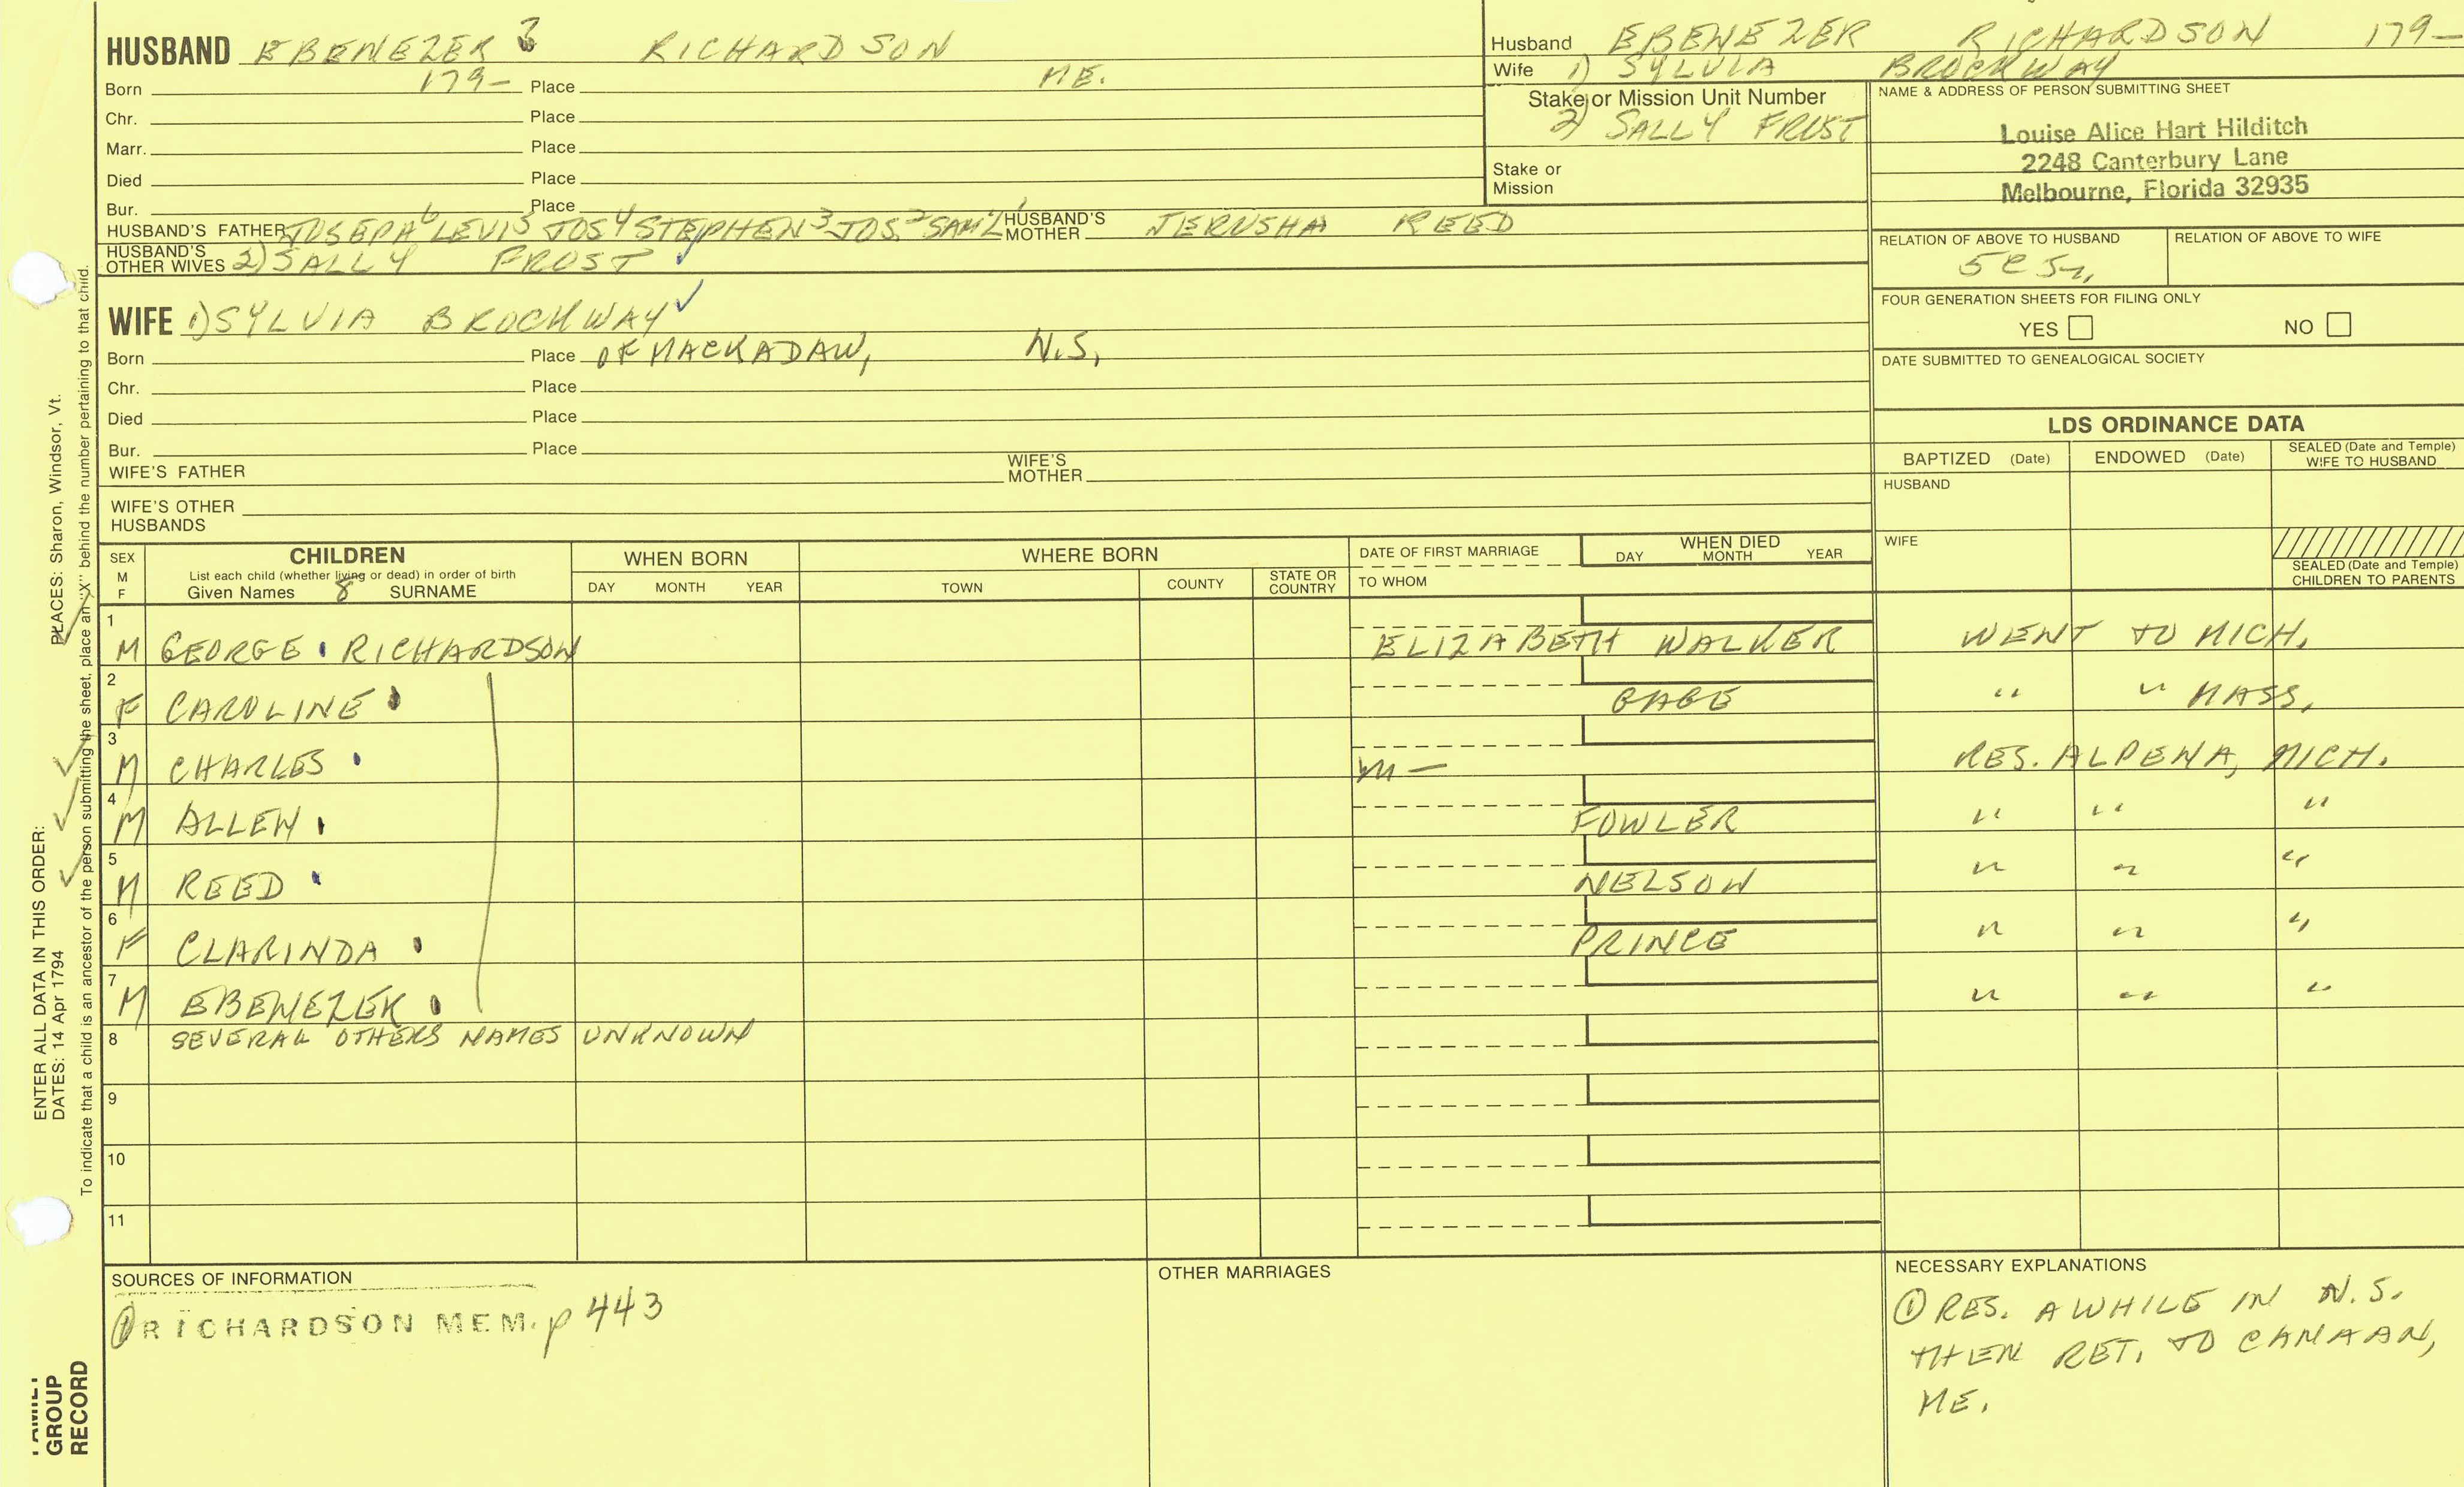 HUSBAND EBENEZER 7 RICHARDSON
Born 179- Place ME.
Chr. Place
Marr. Place
Died Place
Bur. Place
HUSBAND'S FATHER JOSEPH 6 LEVI 5 JOS 4 STEPHEN 3 JOS. 2 SAML 1 HUSBAND'S MOTHER JERUSHA REED
HUSBAND'S OTHER WIVES 2) SALLY FROST ✓
Husband EBENEZER RICHARDSON 179-
Wife 1) SYLVIA BROCKWAY
Stake or Mission Unit Number
2) SALLY FROST
Stake or Mission
NAME & ADDRESS OF PERSON SUBMITTING SHEET
Louise Alice Hart Hilditch
2248 Canterbury Lane
Melbourne, Florida 32935
RELATION OF ABOVE TO HUSBAND RELATION OF ABOVE TO WIFE
5C
FOUR GENERATION SHEETS FOR FILING ONLY
YES NO
DATE SUBMITTED TO GENEALOGICAL SOCIETY
WIFE 1) SYLVIA BROCKWAY ✓
Born Place OF MACKADAW, N.S.
Chr. Place
Died Place
Bur. Place
WIFE'S FATHER WIFE'S MOTHER
WIFE'S OTHER HUSBANDS
LDS ORDINANCE DATA
BAPTIZED (Date) ENDOWED (Date) SEALED (Date and Temple) WIFE TO HUSBAND
HUSBAND
WIFE
SEALED (Date and Temple) CHILDREN TO PARENTS
SEX M F
CHILDREN
List each child (whether living or dead) in order of birth
Given Names 8 SURNAME
WHEN BORN
DAY MONTH YEAR
WHERE BORN
TOWN COUNTY STATE OR COUNTRY
DATE OF FIRST MARRIAGE
TO WHOM
WHEN DIED
DAY MONTH YEAR
1 M GEORGE RICHARDSON ELIZABETH WALKER WENT TO MICH.
2 F CAROLINE GAGE " " MASS.
3 M CHARLES m — RES. ALPENA, MICH.
4 M ALLEN FOWLER " " "
5 M REED NELSON " " "
6 F CLARINDA PRINCE " " "
7 M EBENEZER " " "
8 SEVERAL OTHERS NAMES UNKNOWN
9
10
11
SOURCES OF INFORMATION
① RICHARDSON MEM. p 443
OTHER MARRIAGES
NECESSARY EXPLANATIONS
① RES. AWHILE IN N.S.
THEN RET. TO CANAAN,
ME.
PLACES: Sharon, Windsor, Vt.
To indicate that a child is an ancestor of the person submitting the sheet, place an "X" behind the number pertaining to that child.
ENTER ALL DATA IN THIS ORDER:
DATES: 14 Apr 1794
FAMILY
GROUP
RECORD